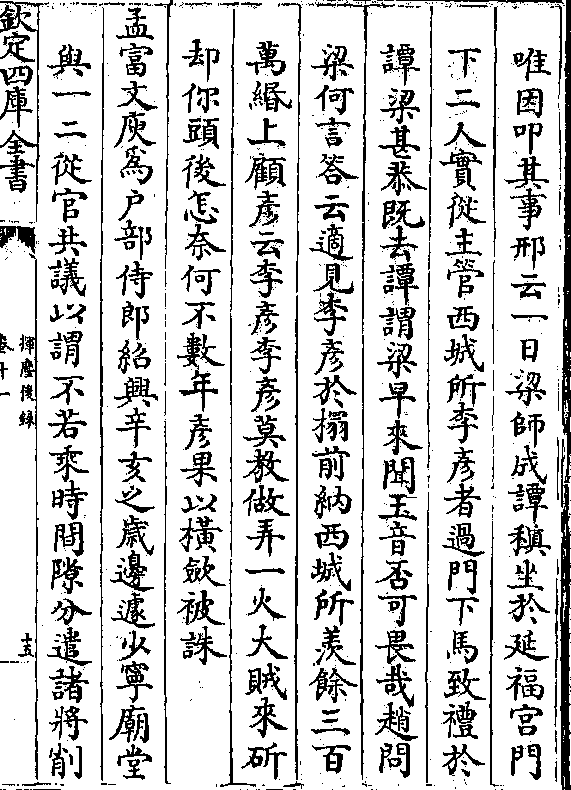 唯因叩其事邢云一日梁師成譚稹坐於延福宮門
下二人實從主管西城所李彥者過門下馬致禮於
譚梁甚恭既去譚謂梁早來聞玉音否可畏哉趙問
梁何言答云適見李彥於榻前納西城所羨餘三百
萬緡上顧彥云李彥李彥莫教做弄一火大賊來斫
却你頭後怎奈何不數年彥果以橫斂被誅
孟富文庾為户部侍郎紹興辛亥之歲邊遽少寧廟堂
與一二從官共議以謂不若乘時間隙分遣諸將削
欽定四庫全書
揮麈後録
卷十一
十五